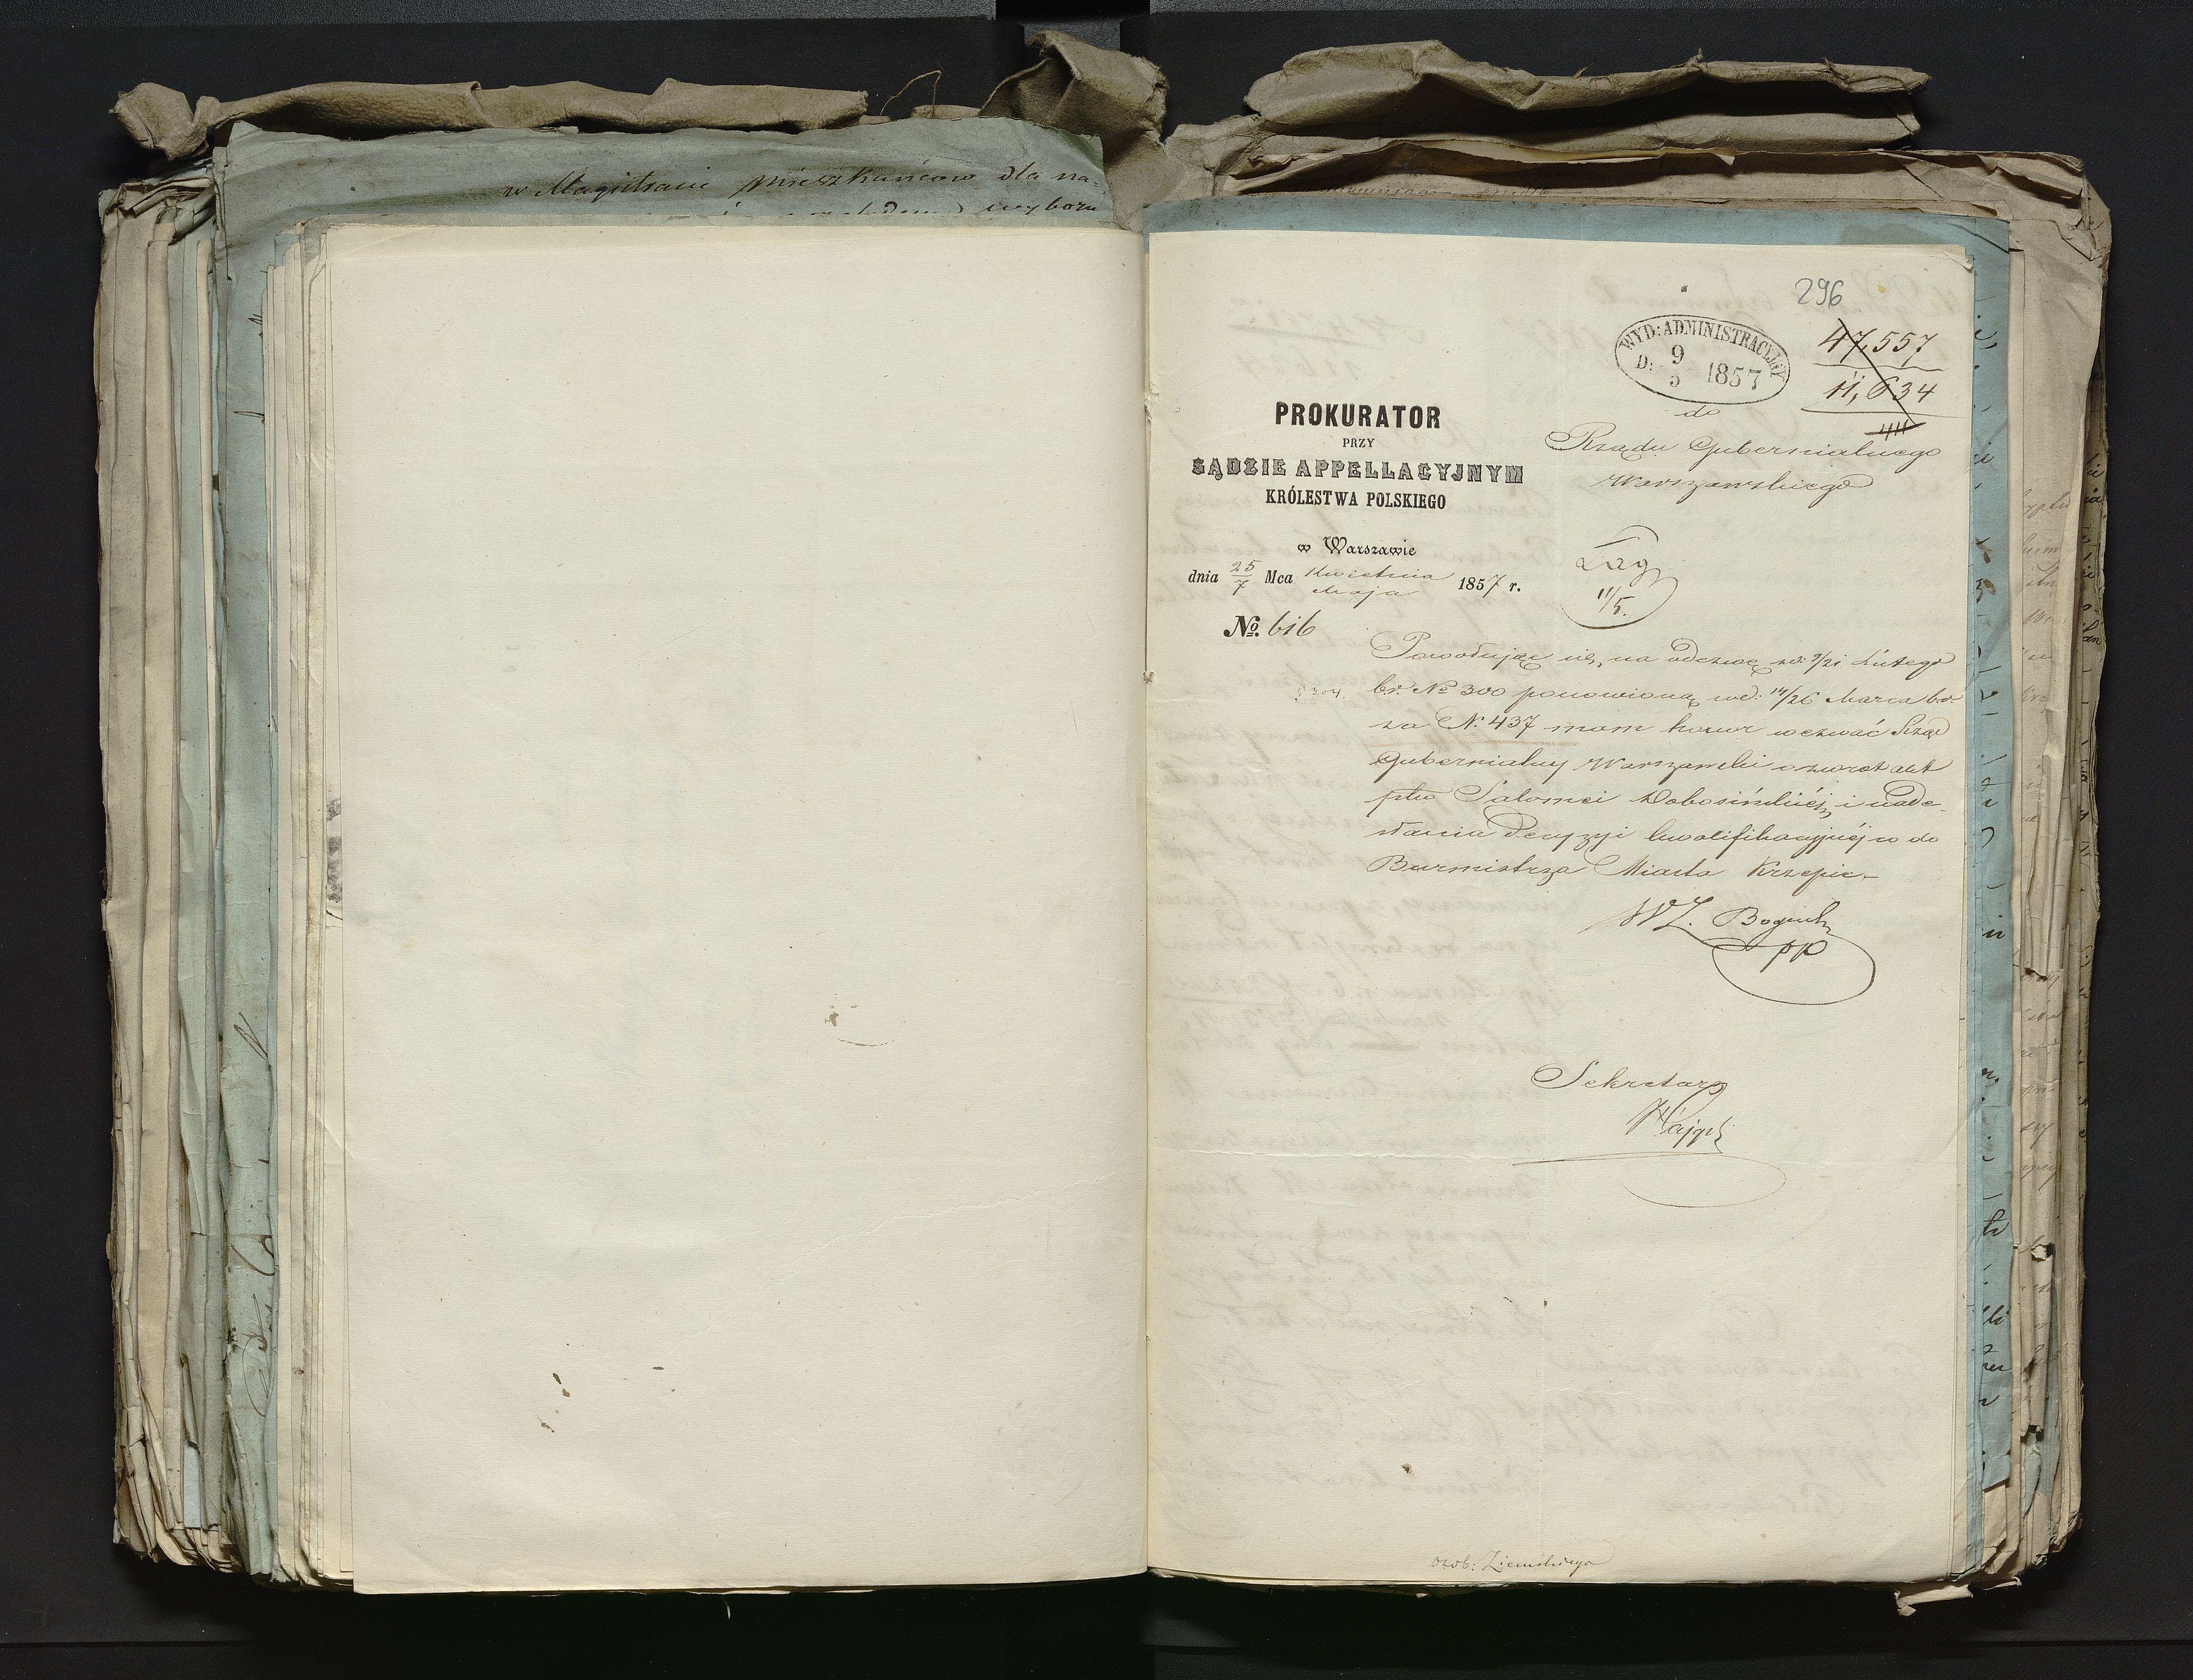 w Magistracie Mieszkańców dla na-
wyboru
296
WYD: ADMINISTRACYJNY
D: 9/5 1857
47,557
11,634
do
Rządu Gubernialnego
Warszawskiego
PROKURATOR
PRZY
SĄDZIE APPELLACYJNYM
KRÓLESTWA POLSKIEGO
w Warszawie
dnia 25/7 Mca Kwietnia/Maja 1857 r.
11/5.
No. 616
Powołując się, na odezwę zd: 9/21 Lutego
b.r. No 300 ponowioną wd: 14/26 Marca b.r.
za N. 437 mam honor wezwać Rząd
Gubernialny Warszawski o zwrot akt
ptu Salomei i nade-
słania Decyzyi kwalifikacyjnéj co do
Burmistrza Miasta Krzepic-
WZ.
pp
Sekretarz